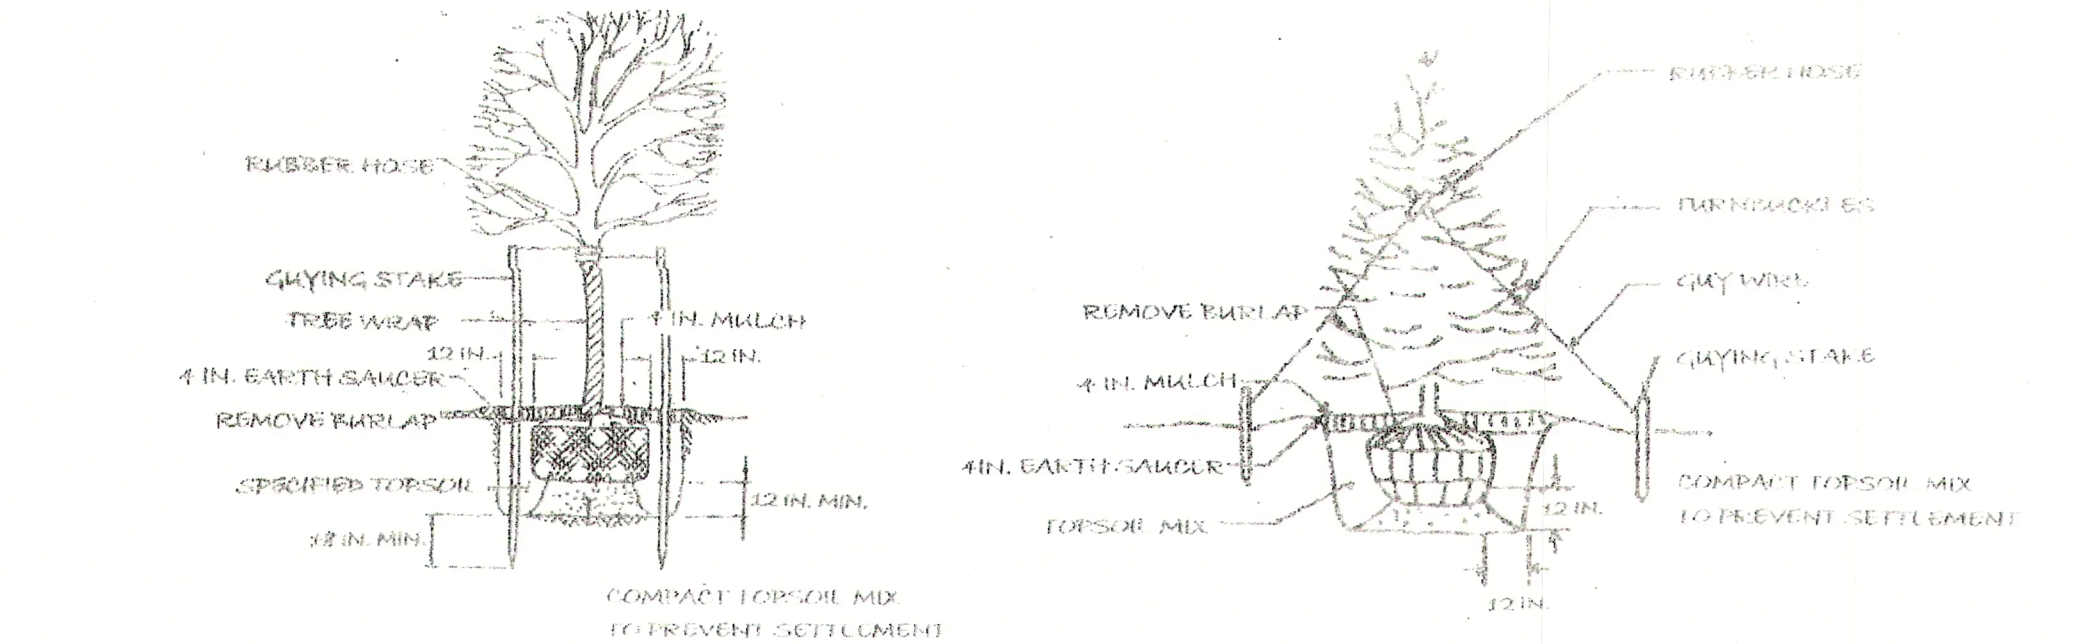 RUBBER HOSE
GUYING STAKE
TREE WRAP
4 IN. MULCH
12 IN.
12 IN.
4 IN. EARTH SAUCER
REMOVE BURLAP
SPECIFIED TOPSOIL
12 IN. MIN.
18 IN. MIN.
COMPACT TOPSOIL MIX
TO PREVENT SETTLEMENT
RUBBER HOSE
TURNBUCKLES
GUY WIRE
REMOVE BURLAP
GUYING STAKE
4 IN. MULCH
4 IN. EARTH SAUCER
TOPSOIL MIX
12 IN.
12 IN.
COMPACT TOPSOIL MIX
TO PREVENT SETTLEMENT